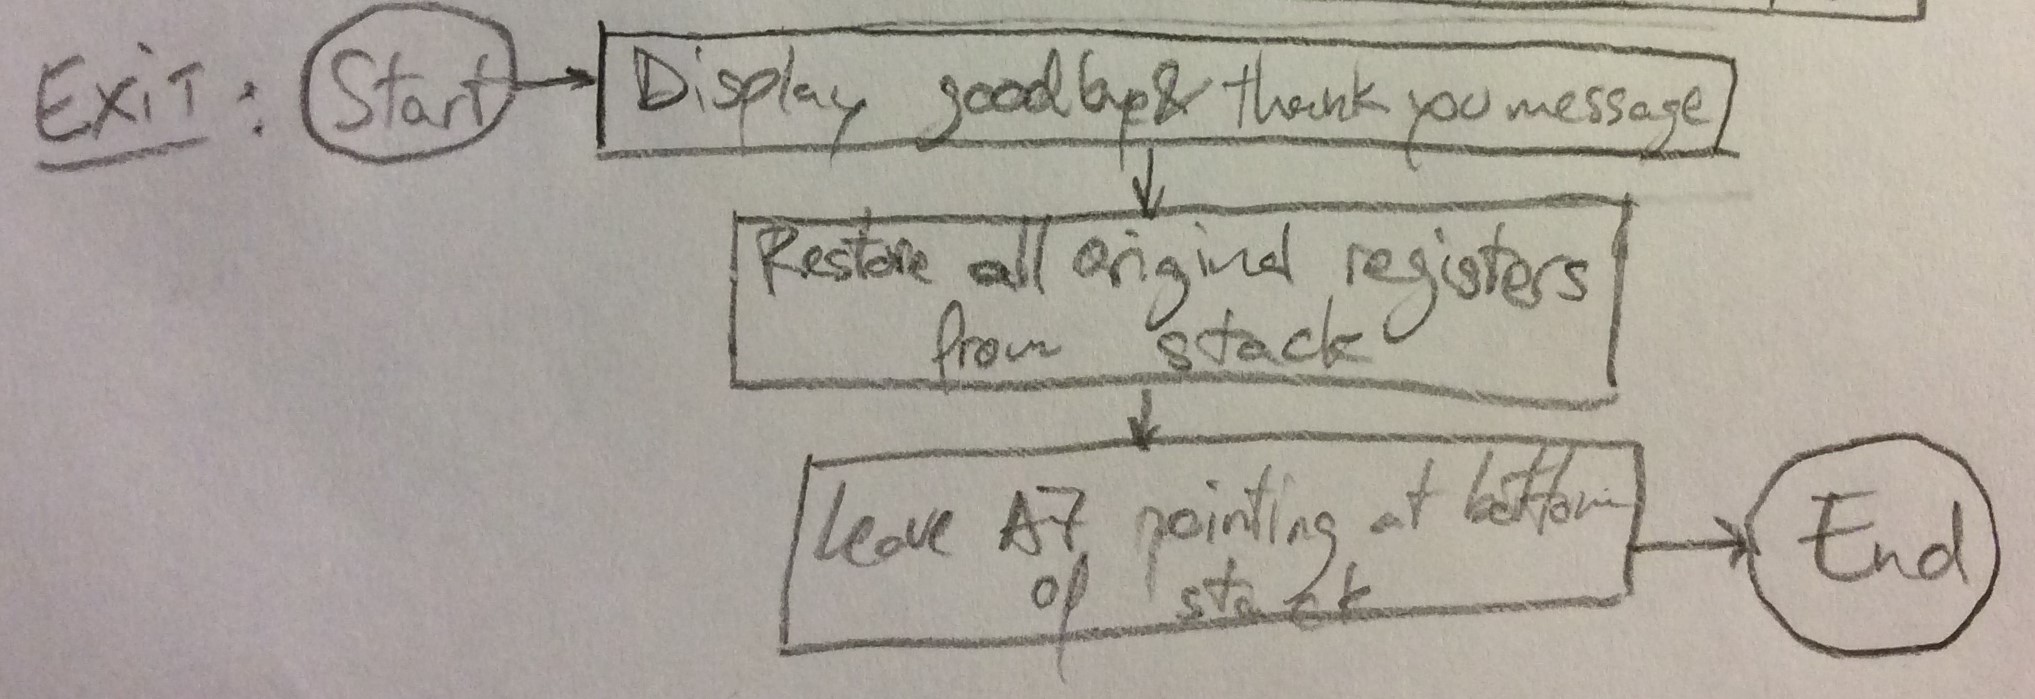 ExiT: Start
Display goodbye & thank you message
Restore all original registers
from stack
Leave A7 pointing at bottom
of stack
End